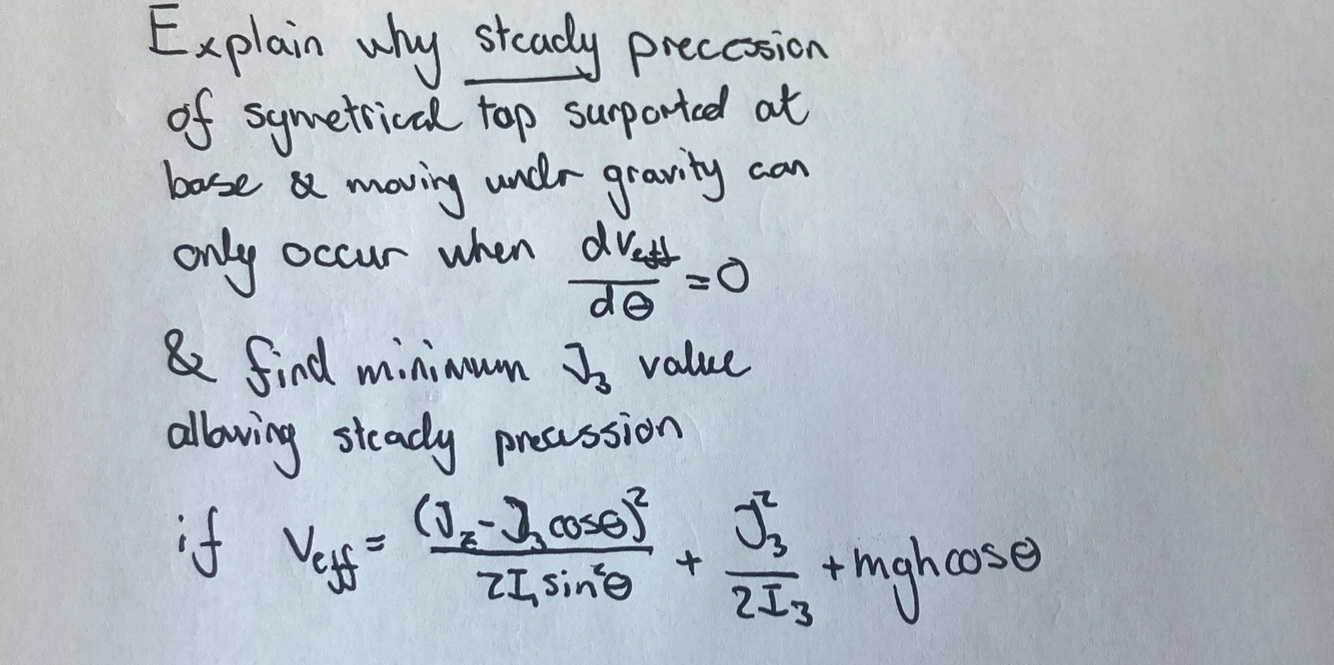 Explain why steady precession
of symetrical top surported at
base & moving undr gravity can
only occur when dVeff/dθ = 0
& find minimum J₃ value
allowing steady precission
if Veff = (J_z - J₃cosθ)²/2I₁sin²θ + J₃²/2I₃ + mghcosθ